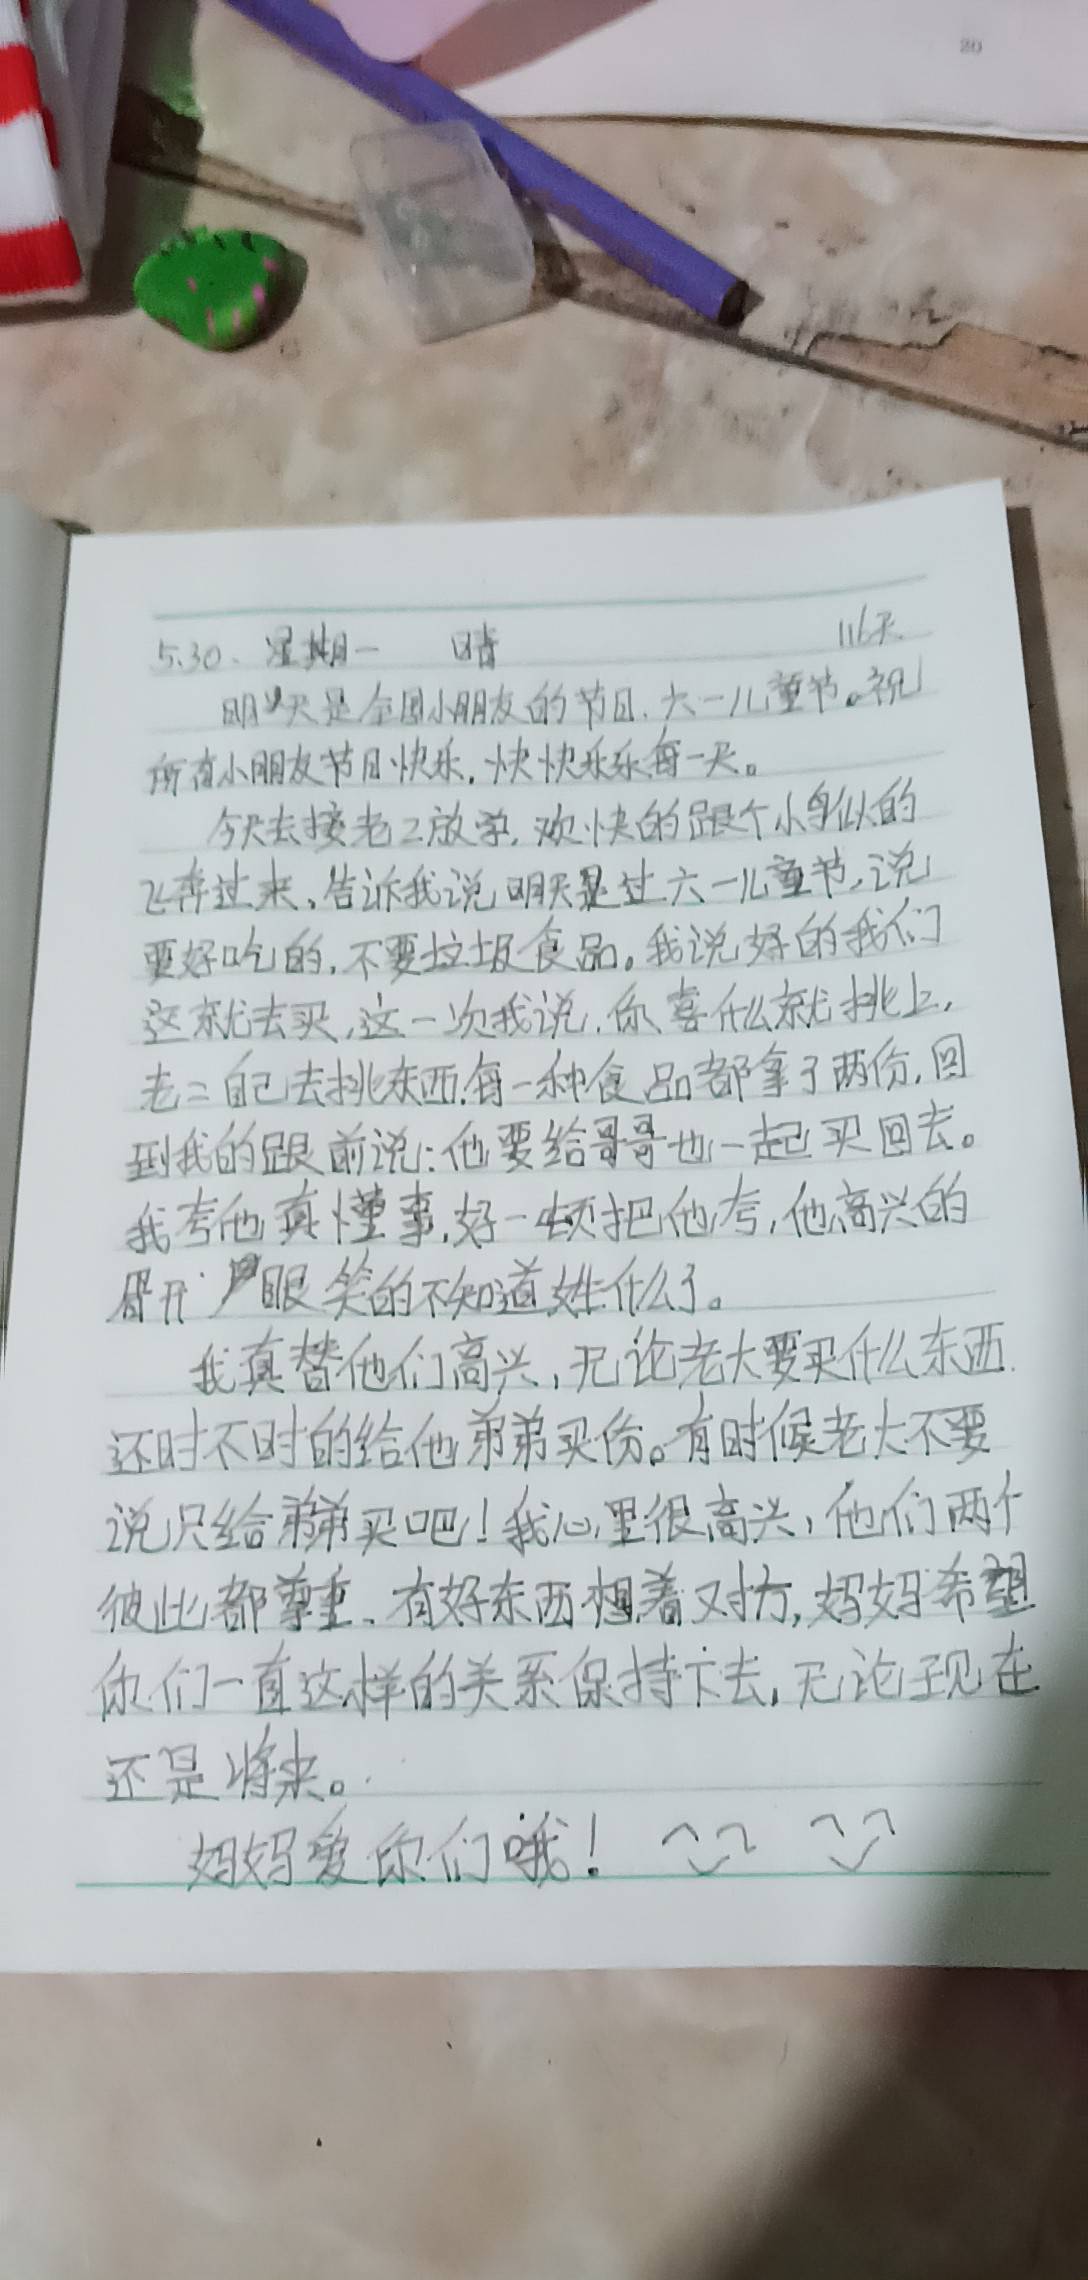 20
5.30. 星期一 晴 116天
明天是全国小朋友的节日.六一儿童节。祝
所有小朋友节日快乐,快快乐乐每一天。
今天去接老二放学,欢快的跟个小鸟似的
飞奔过来,告诉我说明天是过六一儿童节,说
要好吃的,不要垃圾食品。我说好的我们
这就去买,这一次我说,你喜什么就挑上,
老二自己去挑东西,每一种食品都拿了两份,回
到我的跟前说:他要给哥哥也一起买回去。
我夸他真懂事,好一顿把他夸,他高兴的
眉开 眼笑的不知道姓什么了。
我真替他们高兴,无论老大要买什么东西.
还时不时的给他弟弟买份。有时候老大不要
说只给弟弟买吧!我心里很高兴,他们两个
彼此都尊重、有好东西想着对方,妈妈希望
你们一直这样的关系保持下去,无论现在
还是将来。
妈妈爱你们哦!